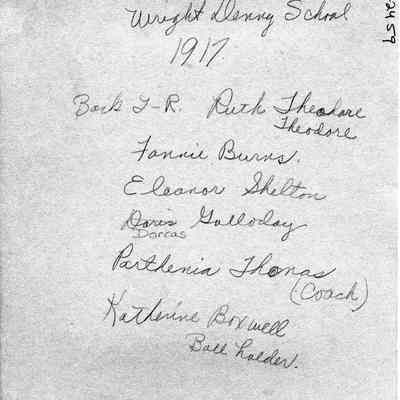 Wright Denny School
1917
Back L-R. Ruth Theodore
Theodore
Fannie Burns.
Eleanor Shelton
Doris Golloday
Dorcas
Parthenia Thomas
(Coach)
Katherine Boxwell
Ball holder.